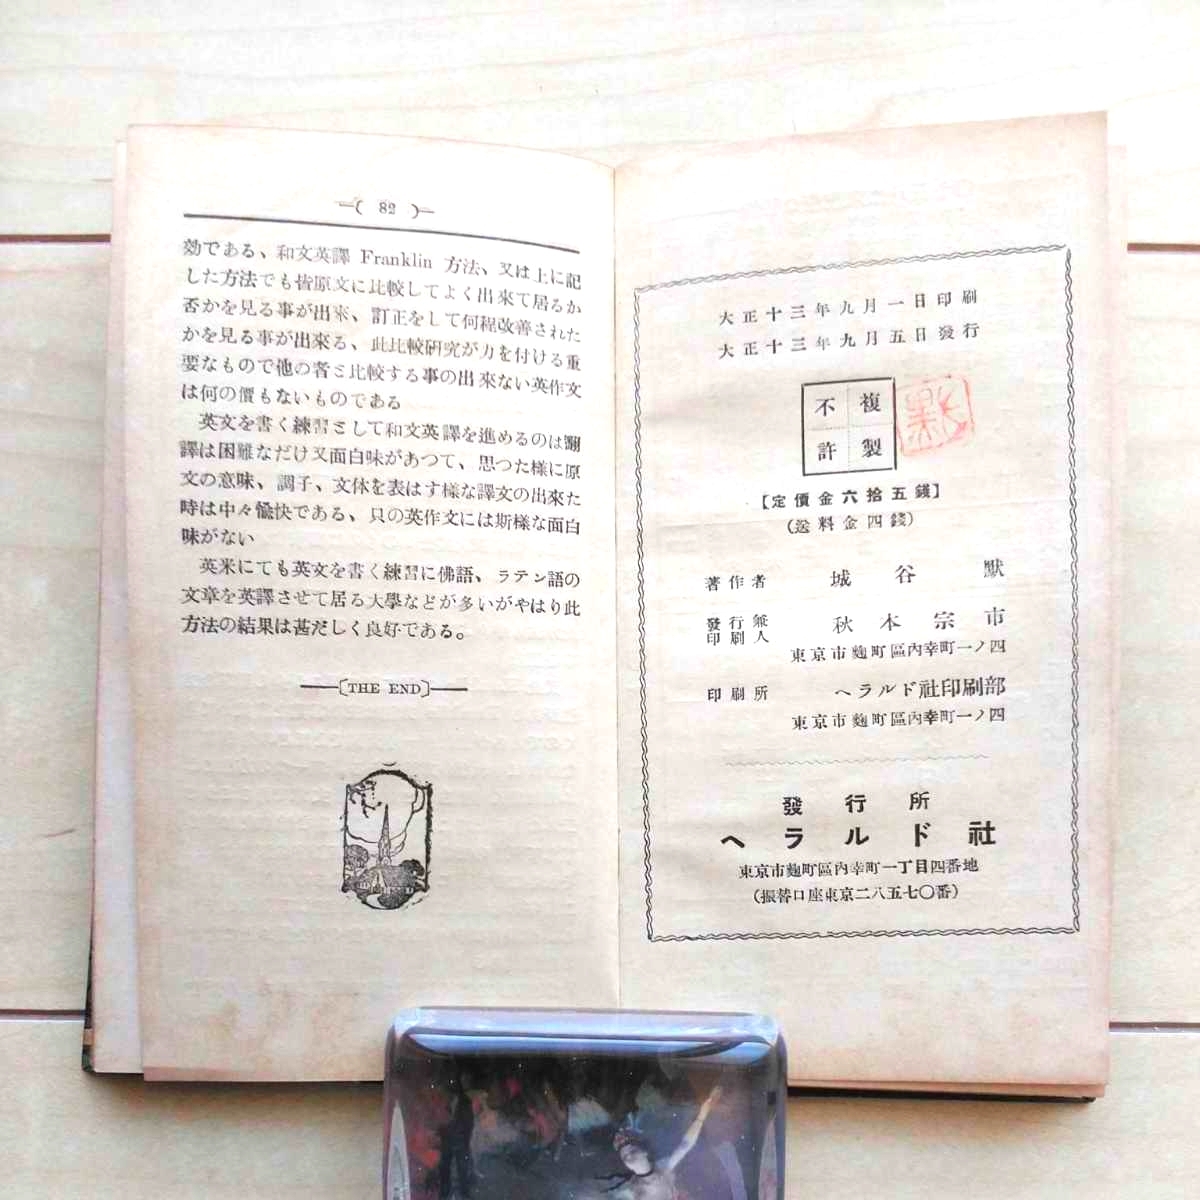 82
効である、和文英譯 Franklin 方法、又は上に記
した方法でも皆原文に比較してよく出來て居るか
否かを見る事が出來、訂正をして何程改善された
かを見る事が出來る、此比較研究が力を付ける重
要なもので他の者と比較する事の出來ない英作文
は何の價もないものである
英文を書く練習として和文英譯を進めるのは飜
譯は困難なだけ又面白味があつて、思つた樣に原
文の意味、調子、文体を表はす樣な譯文の出來た
時は中々愉快である、只の英作文には斯樣な面白
味がない
英米にても英文を書く練習に佛語、ラテン語の
文章を英譯させて居る大學などが多いがやはり此
方法の結果は甚だしく良好である。
THE END
大正十三年九月一日印刷
大正十三年九月五日發行
不許複製
【定價金六拾五錢】
(送料金四錢)
著作者 城谷默
發行兼印刷人 秋本宗市
東京市麴町區內幸町一ノ四
印刷所 ヘラルド社印刷部
東京市麴町區內幸町一ノ四
發行所
ヘラルド社
東京市麴町區內幸町一丁目四番地
(振替口座東京二八五七〇番)